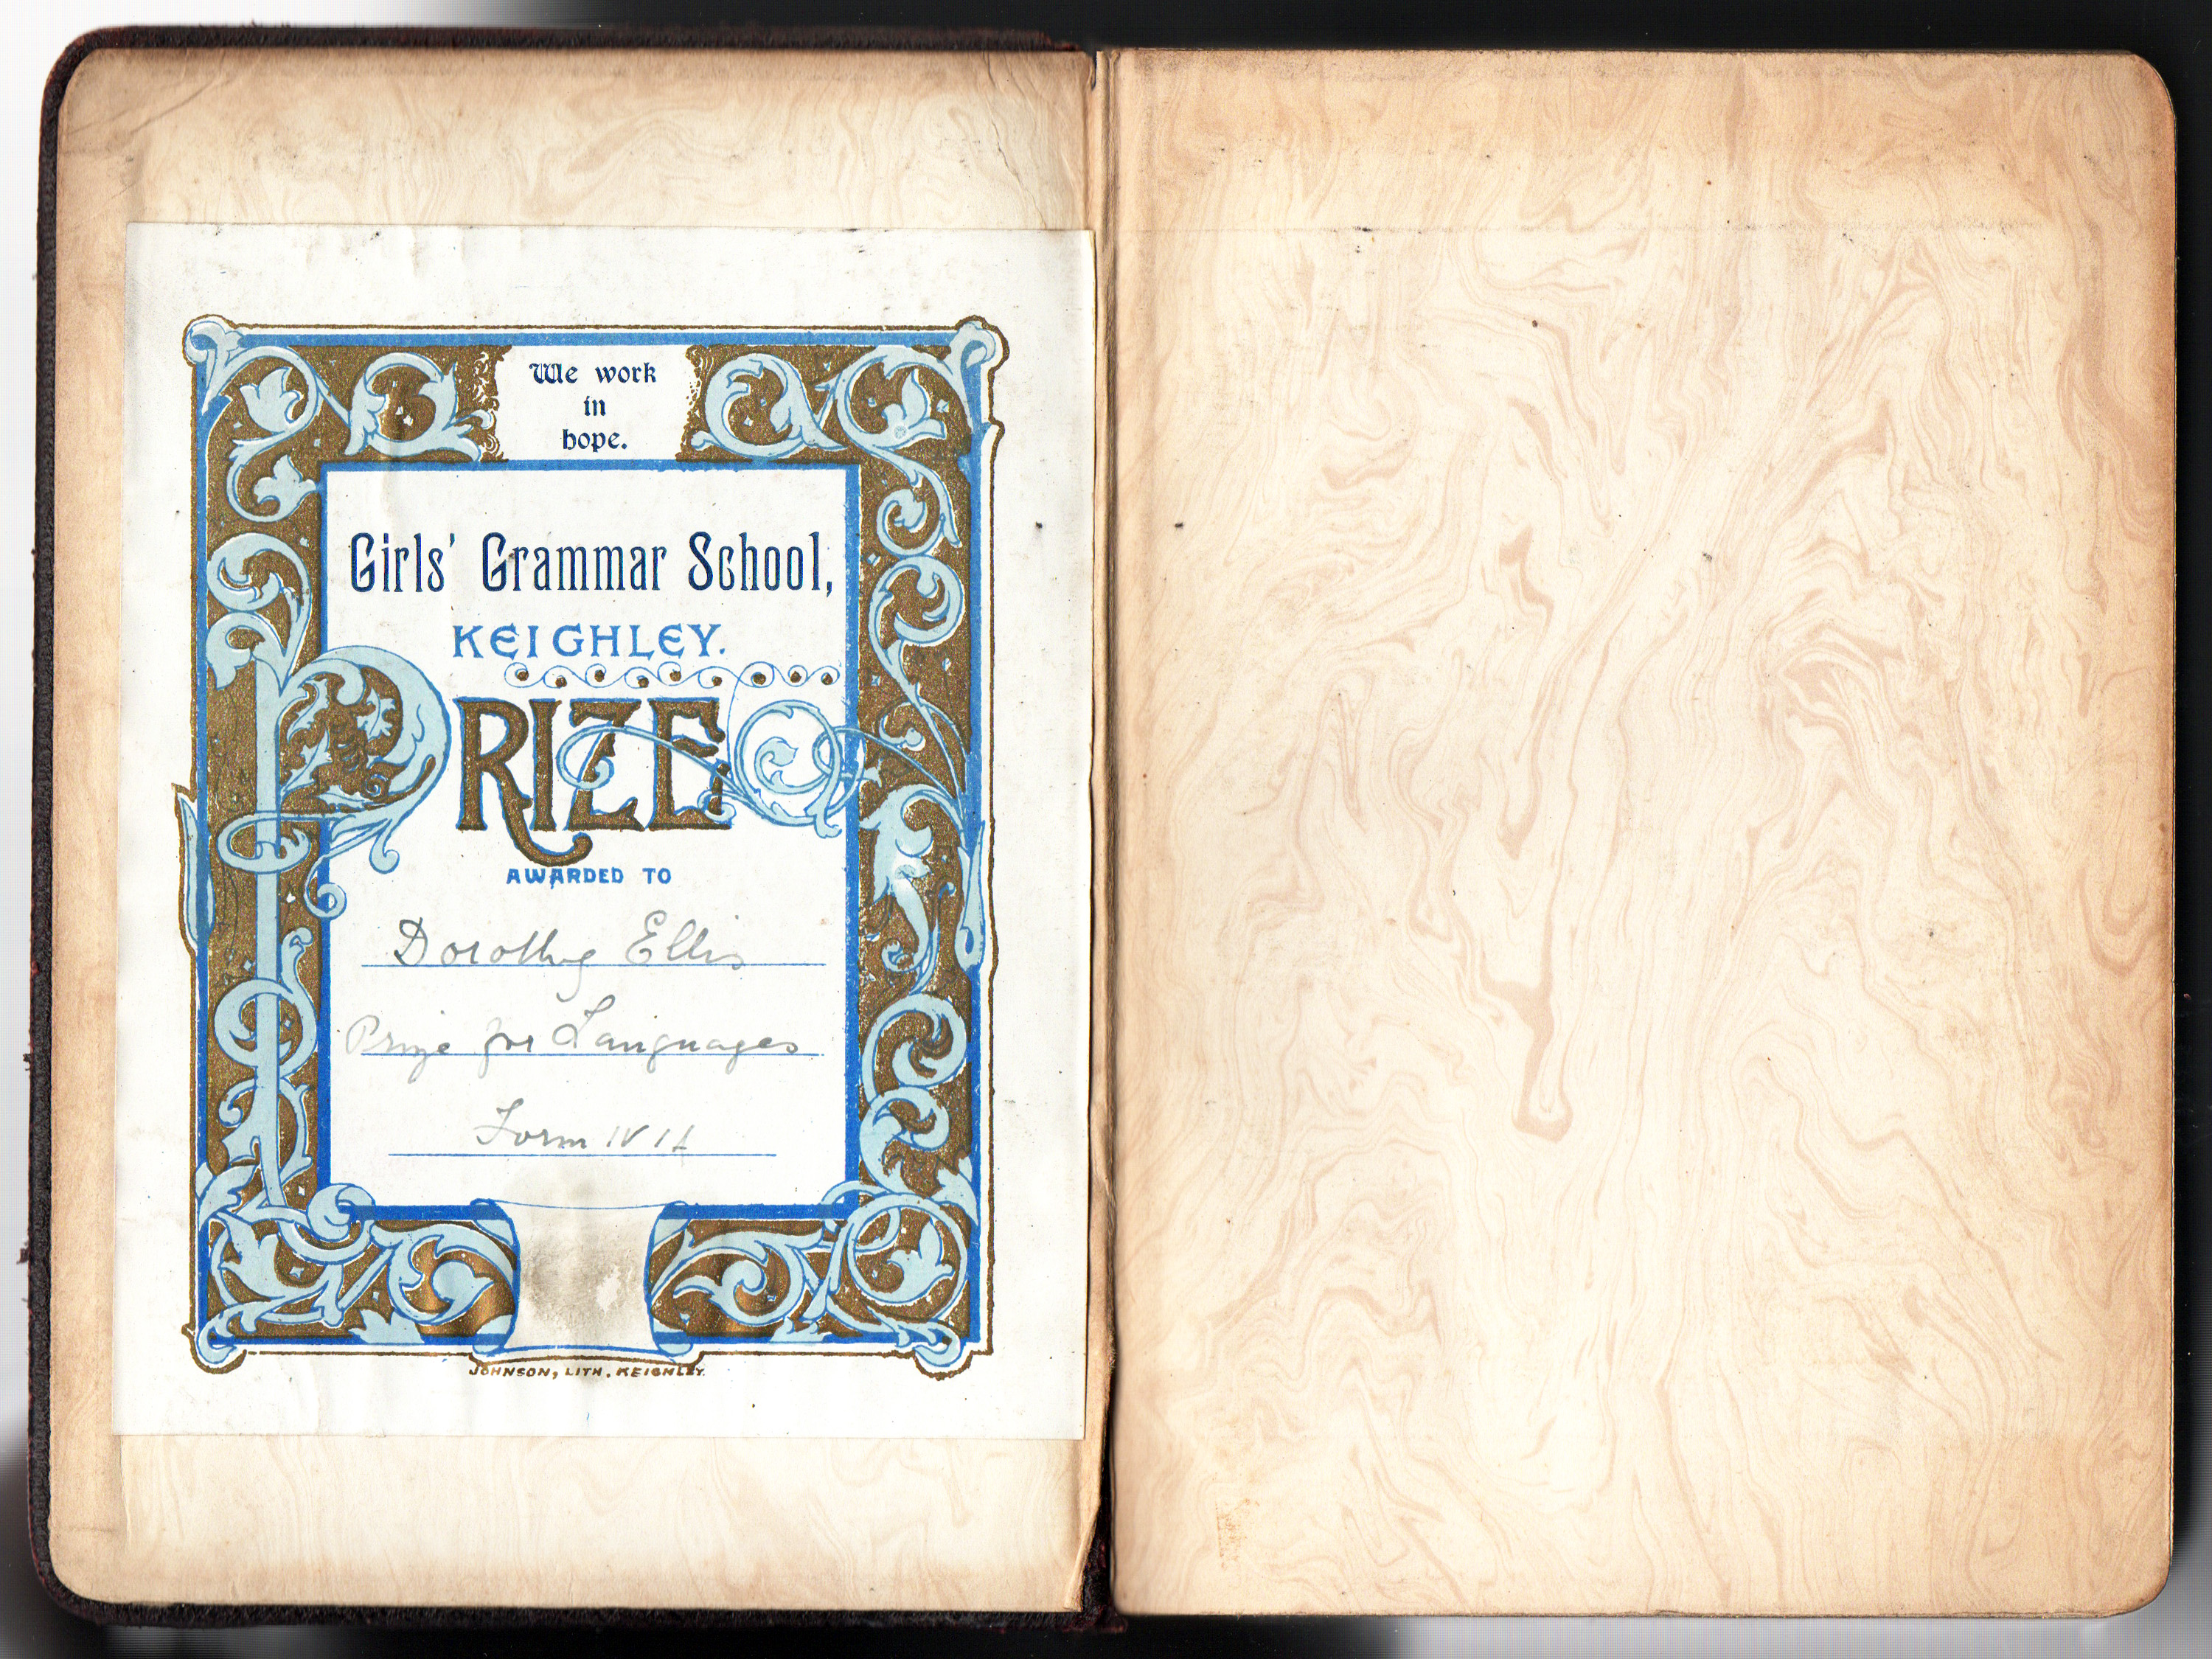 We work
in
hope.
Girls' Grammar School,
KEIGHLEY.
PRIZE
AWARDED TO
Dorothy Ellis
Prize for Languages
Form IV A
JOHNSON, LITH. KEIGHLEY.